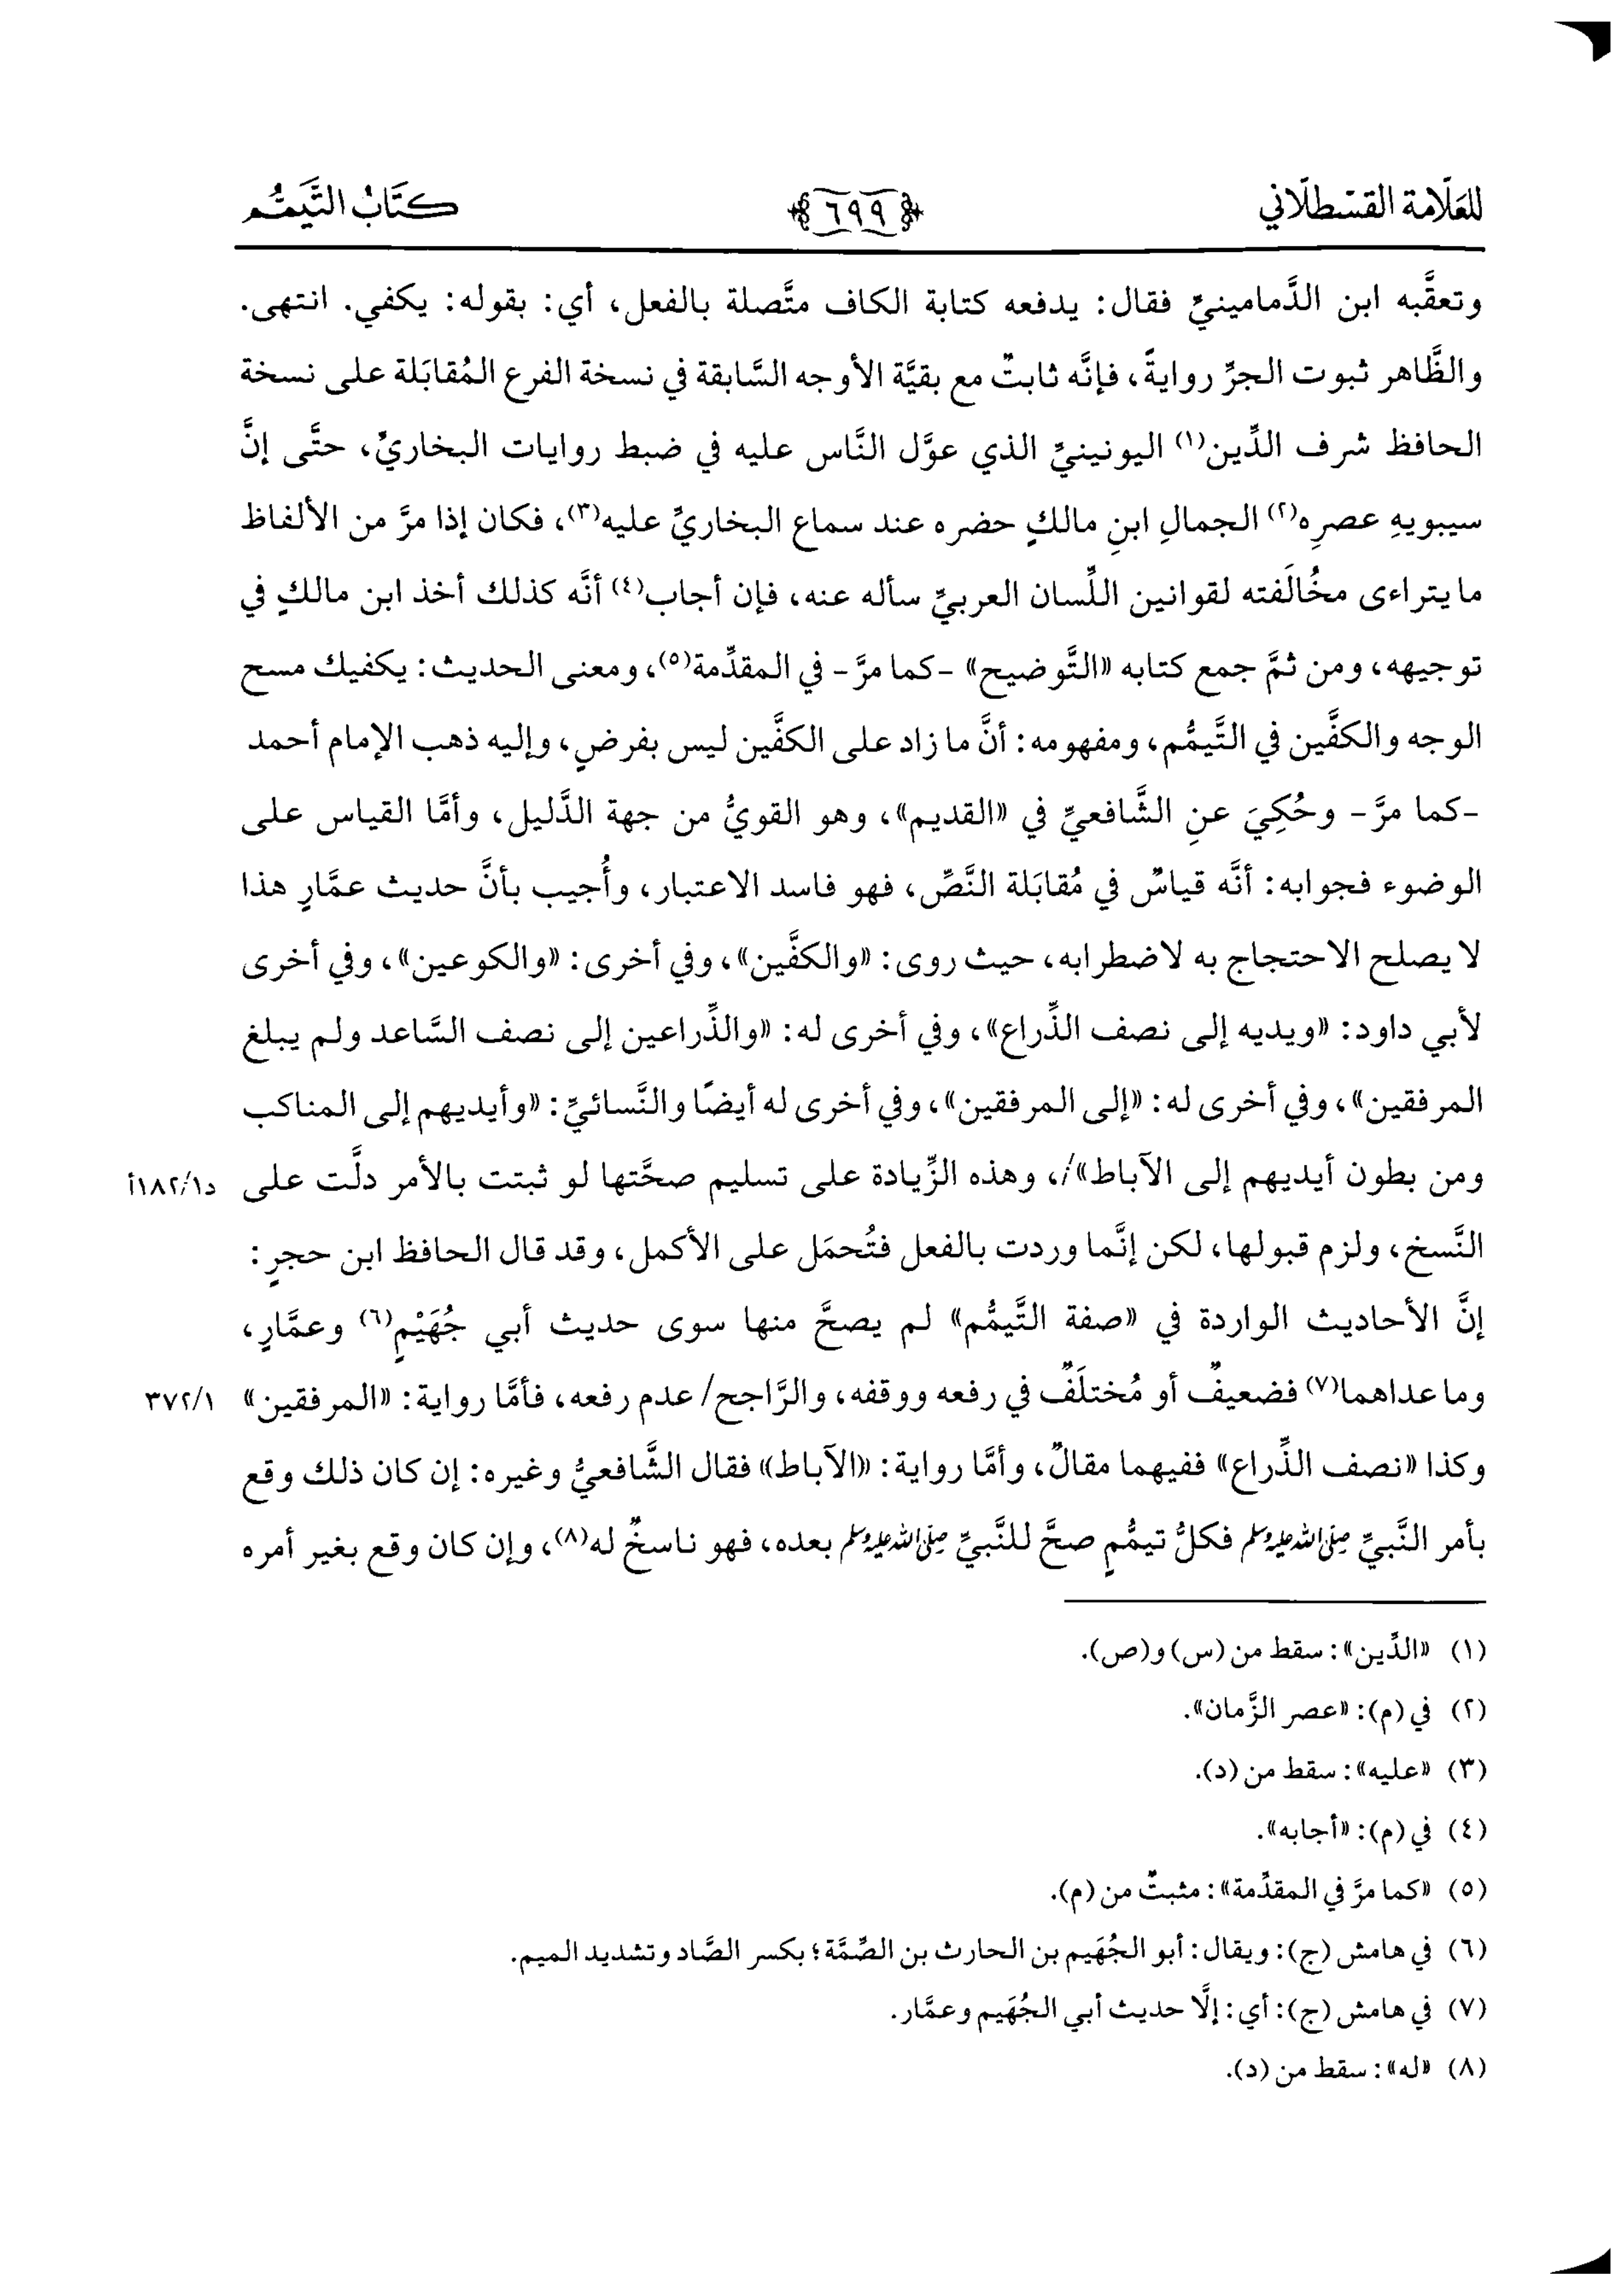 للعلامة القسطلاني ٦٩٩ كتاب التيمم
وتعقَّبه ابن الدَّمامينيِّ فقال: يدفعه كتابة الكاف متَّصلة بالفعل، أي: بقوله: يكفي. انتهى.
والظَّاهر ثبوت الجرِّ روايةً، فإنَّه ثابتٌ مع بقيَّة الأوجه السَّابقة في نسخة الفرع المُقابَلة على نسخة
الحافظ شرف الدِّين(١) اليونينيِّ الذي عوَّل النَّاس عليه في ضبط روايات البخاريِّ، حتَّى إنَّ
سيبويهِ عصرِه(٢) الجمالِ ابنِ مالكٍ حضره عند سماع البخاريِّ عليه(٣)، فكان إذا مرَّ من الألفاظ
ما يتراءى مخُالَفته لقوانين اللِّسان العربيِّ سأله عنه، فإن أجاب(٤) أنَّه كذلك أخذ ابن مالكٍ في
توجيهه، ومن ثمَّ جمع كتابه «التَّوضيح» -كما مرَّ- في المقدِّمة(٥)، ومعنى الحديث: يكفيك مسح
الوجه والكفَّين في التَّيمُّم، ومفهومه: أنَّ ما زاد على الكفَّين ليس بفرضٍ، وإليه ذهب الإمام أحمد
-كما مرَّ- وحُكِيَ عنِ الشَّافعيِّ في «القديم»، وهو القويُّ من جهة الدَّليل، وأمَّا القياس على
الوضوء فجوابه: أنَّه قياسٌ في مُقابَلة النَّصِّ، فهو فاسد الاعتبار، وأُجيب بأنَّ حديث عمَّارٍ هذا
لا يصلح الاحتجاج به لاضطرابه، حيث روى: «والكفَّين»، وفي أخرى: «والكوعين»، وفي أخرى
لأبي داود: «ويديه إلى نصف الذِّراع»، وفي أخرى له: «والذِّراعين إلى نصف السَّاعد ولم يبلغ
المرفقين»، وفي أخرى له: «إلى المرفقين»، وفي أخرى له أيضًا والنَّسائيِّ: «وأيديهم إلى المناكب
ومن بطون أيديهم إلى الآباط»/، وهذه الزِّيادة على تسليم صحَّتها لو ثبتت بالأمر دلَّت على د١٨٢/١أ
النَّسخ، ولزم قبولها، لكن إنَّما وردت بالفعل فتُحمَل على الأكمل، وقد قال الحافظ ابن حجرٍ:
إنَّ الأحاديث الواردة في «صفة التَّيمُّم» لم يصحَّ منها سوى حديث أبي جُهَيْمٍ(٦) وعمَّارٍ،
وما عداهما(٧) فضعيفٌ أو مُختلَفٌ في رفعه ووقفه، والرَّاجح/ عدم رفعه، فأمَّا رواية: «المرفقين» ٣٧٢/١
وكذا «نصف الذِّراع» ففيهما مقالٌ، وأمَّا رواية: «الآباط» فقال الشَّافعيُّ وغيره: إن كان ذلك وقع
بأمر النَّبيِّ صلى الله عليه وسلم فكلُّ تيمُّمٍ صحَّ للنَّبيِّ صلى الله عليه وسلم بعده، فهو ناسخٌ له(٨)، وإن كان وقع بغير أمره
(١) «الدِّين»: سقط من (س) و(ص).
(٢) في (م): «عصر الزَّمان».
(٣) «عليه»: سقط من (د).
(٤) في (م): «أجابه».
(٥) «كما مرَّ في المقدِّمة»: مثبتٌ من (م).
(٦) في هامش (ج): ويقال: أبو الجُهَيم بن الحارث بن الصِّمَّة؛ بكسر الصَّاد وتشديد الميم.
(٧) في هامش (ج): أي: إلَّا حديث أبي الجُهَيم وعمَّار.
(٨) «له»: سقط من (د).